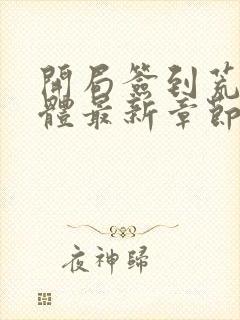 開局簽到荒
體最新章節
夜神歸